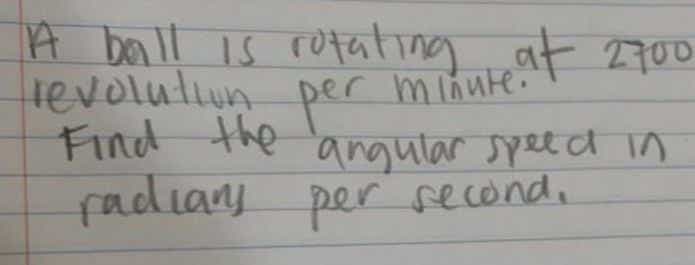 A ball is rotating at 2700
revolution per minute.
Find the angular speed in
radians per second.